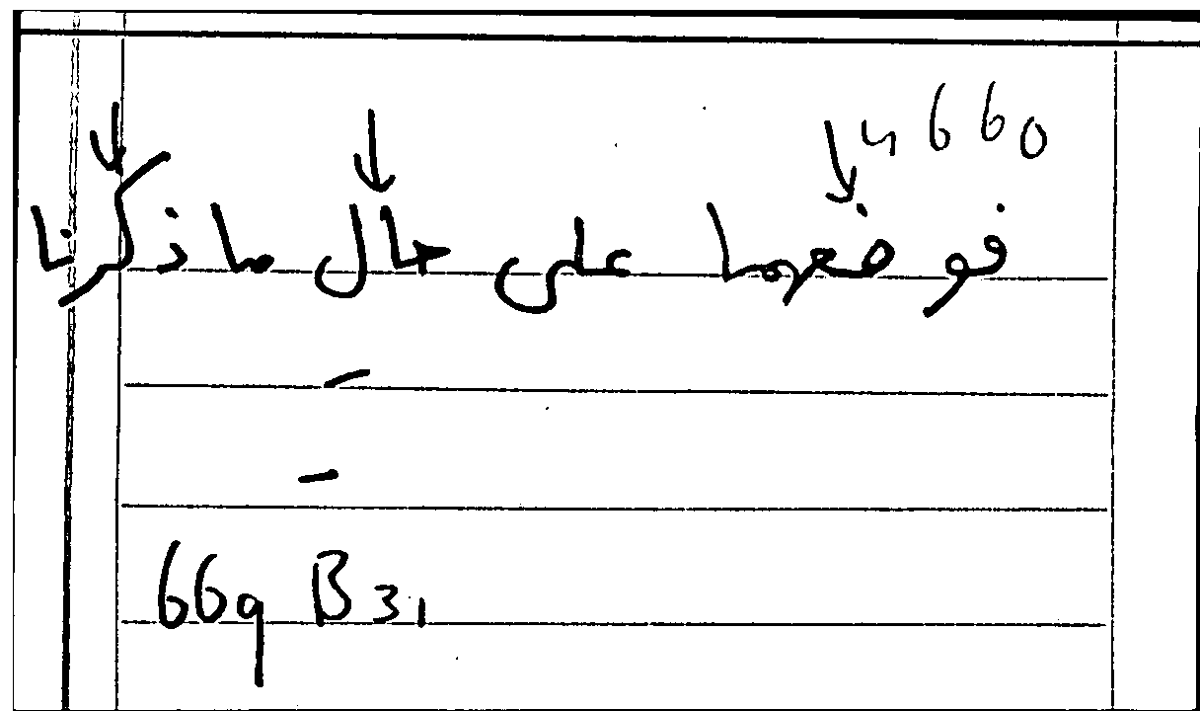 n 660
فوضعهما على حال ما ذكرنا
669 B31